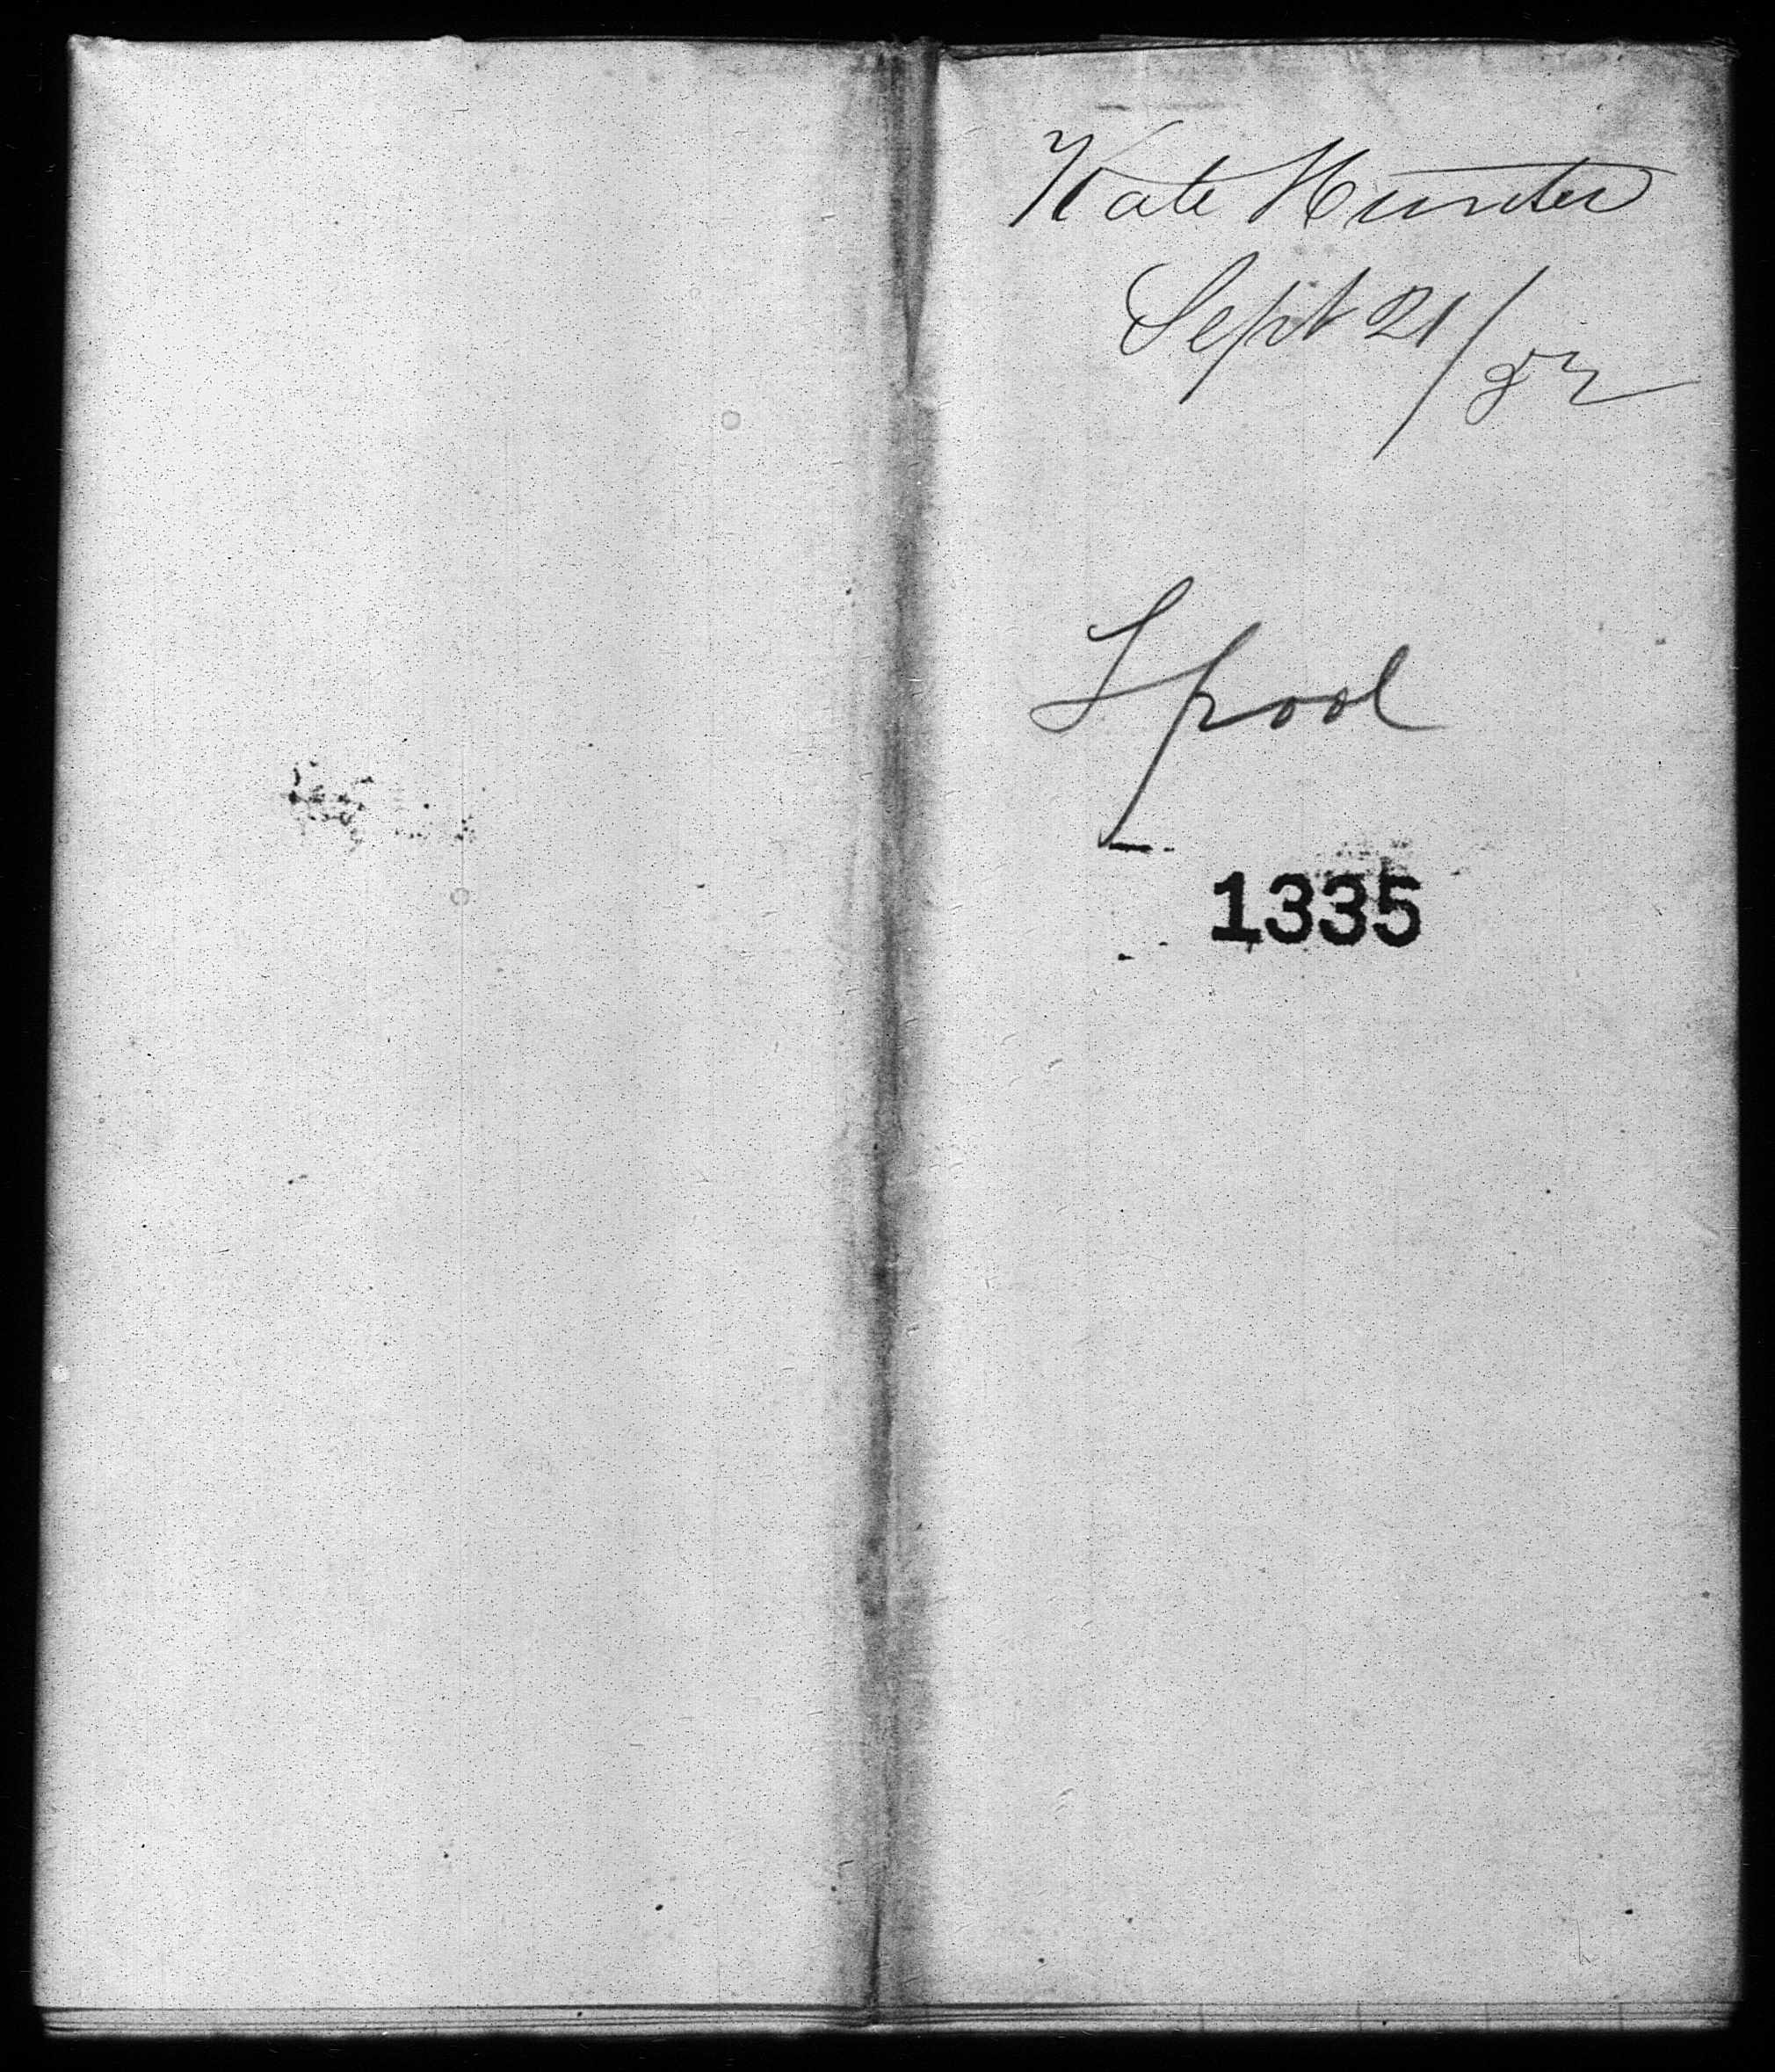 Kate Hunter
Sept 21/82
Spool
1335